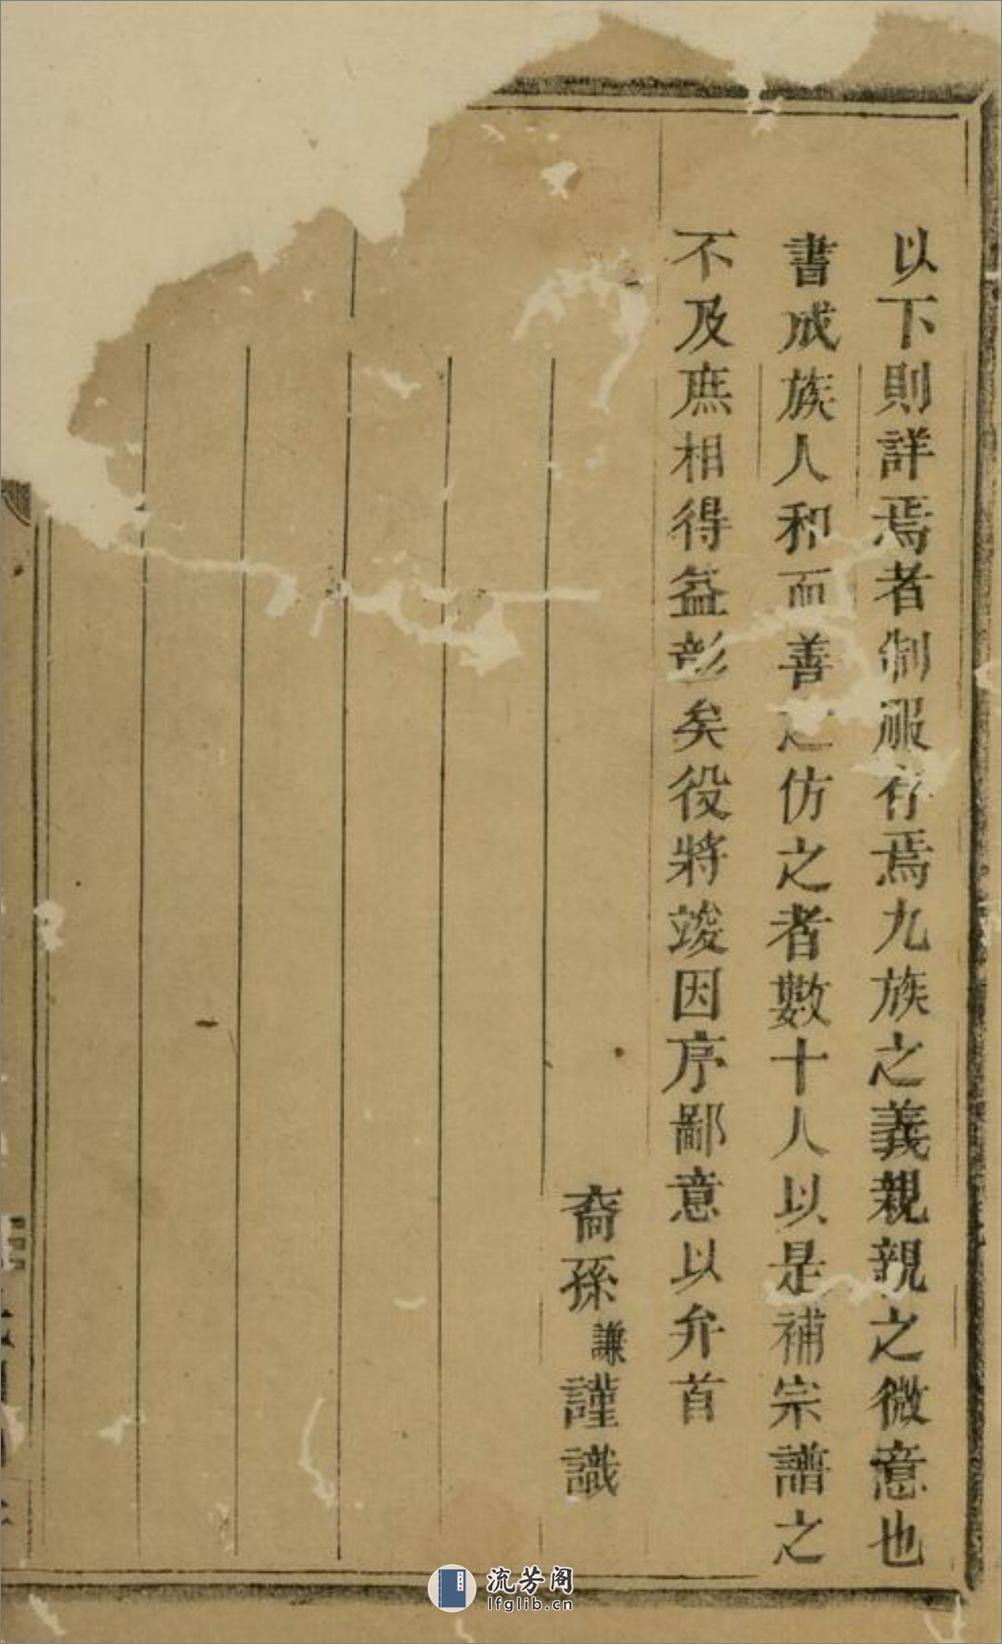 以下則詳焉者制服存焉九族之義親親之微意也
書成族人和而善之仿之者數十人以是補宗譜之
不及庶相得益彰矣役將竣因序鄙意以弁首
裔孫謙謹識
流芳阁
lfglib.cn